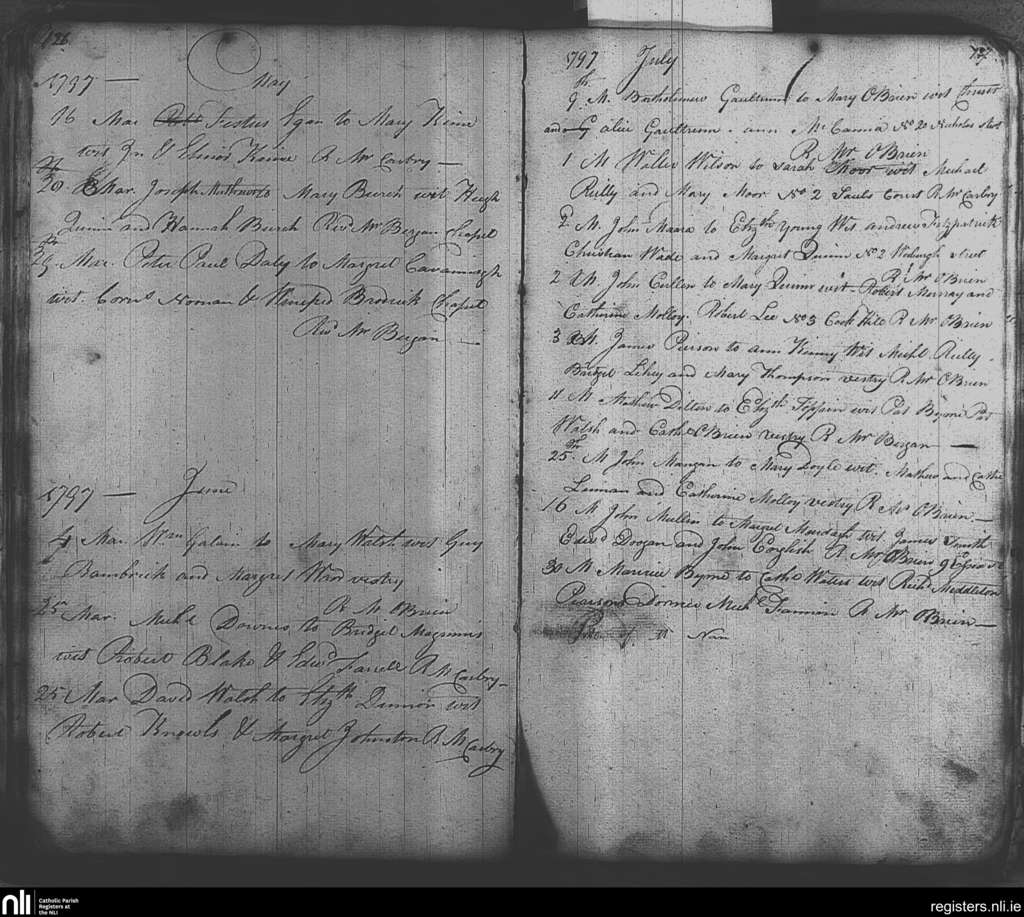 126
1797 — May
16 Mar Festus Egan to Mary Keine
wit Jn & Elinor Keine R Mr Carbry —
20 Mar. Joseph Mathews to Mary Burch wit Hugh
Quinn and Hannah Burch Revd Mr Began Chapel
Mar. Peter Paul Daly to Margret Cavaninagh
wit. Corns Noonan & Winifred Brodrick Chapel
Revd Mr Began —
1797 — June
4 Mar. Wm Galain to Mary Walsh wit Guy
Bambrick and Margret Ward vestry
R M OBrien
25 Mar. Michl Downes to Bridget Maginnis
wit Robert Blake & Edwd Farrell R M Carbry —
25 Mar David Walsh to Elizth Dinnion wit
Robert Knowls & Margret Johnston R M Carbry
127
1797 July
9th M. Bartholomew Gaultrum to Mary OBrien wit
and alice Gaultrum. ann Mc Canna No 20 Nicholas street
R Mr OBrien
1 M Walter Wilson to Sarah Moor wit Michael
Reilly and Mary Moor No 2 Sauls Court R Mr Carbry
2 M. John Maara to Elizth Young Wit andrew Fitzpatrick
Christian Wade and Margret Quinn No 2 Werburgh street
R Mr OBrien
2 M John Cullen to Mary Quinn wit Robert Murray and
Catherine Molloy. Robert Lee No 3 Cook Hill R Mr OBrien
3 M. James Pierson to ann Kinny Wit Michl Reilly
Bridget Lehey and Mary Thompson vestry R Mr OBrien
11 M Mathew Dillon to Elizth Toppin wit Pat Byrne Pat
Walsh and Cathe OBrien vestry R Mr Began —
25th M John Mangan to Mary Doyle wit. Mathew and Cathe
Lennan and Catherine Molloy vestry R Mr OBrien —
16 M John Mullen to Margret Murdagh wit James Smith
Edwd Doogan and John English R Mr OBrien 9
30 M Maurice Byrne to Cathe Waters wit Richd Middleton
Pearson Dornie Michl Fannon R Mr OBrien —
nli
Catholic Parish
Registers at
the NLI
registers.nli.ie